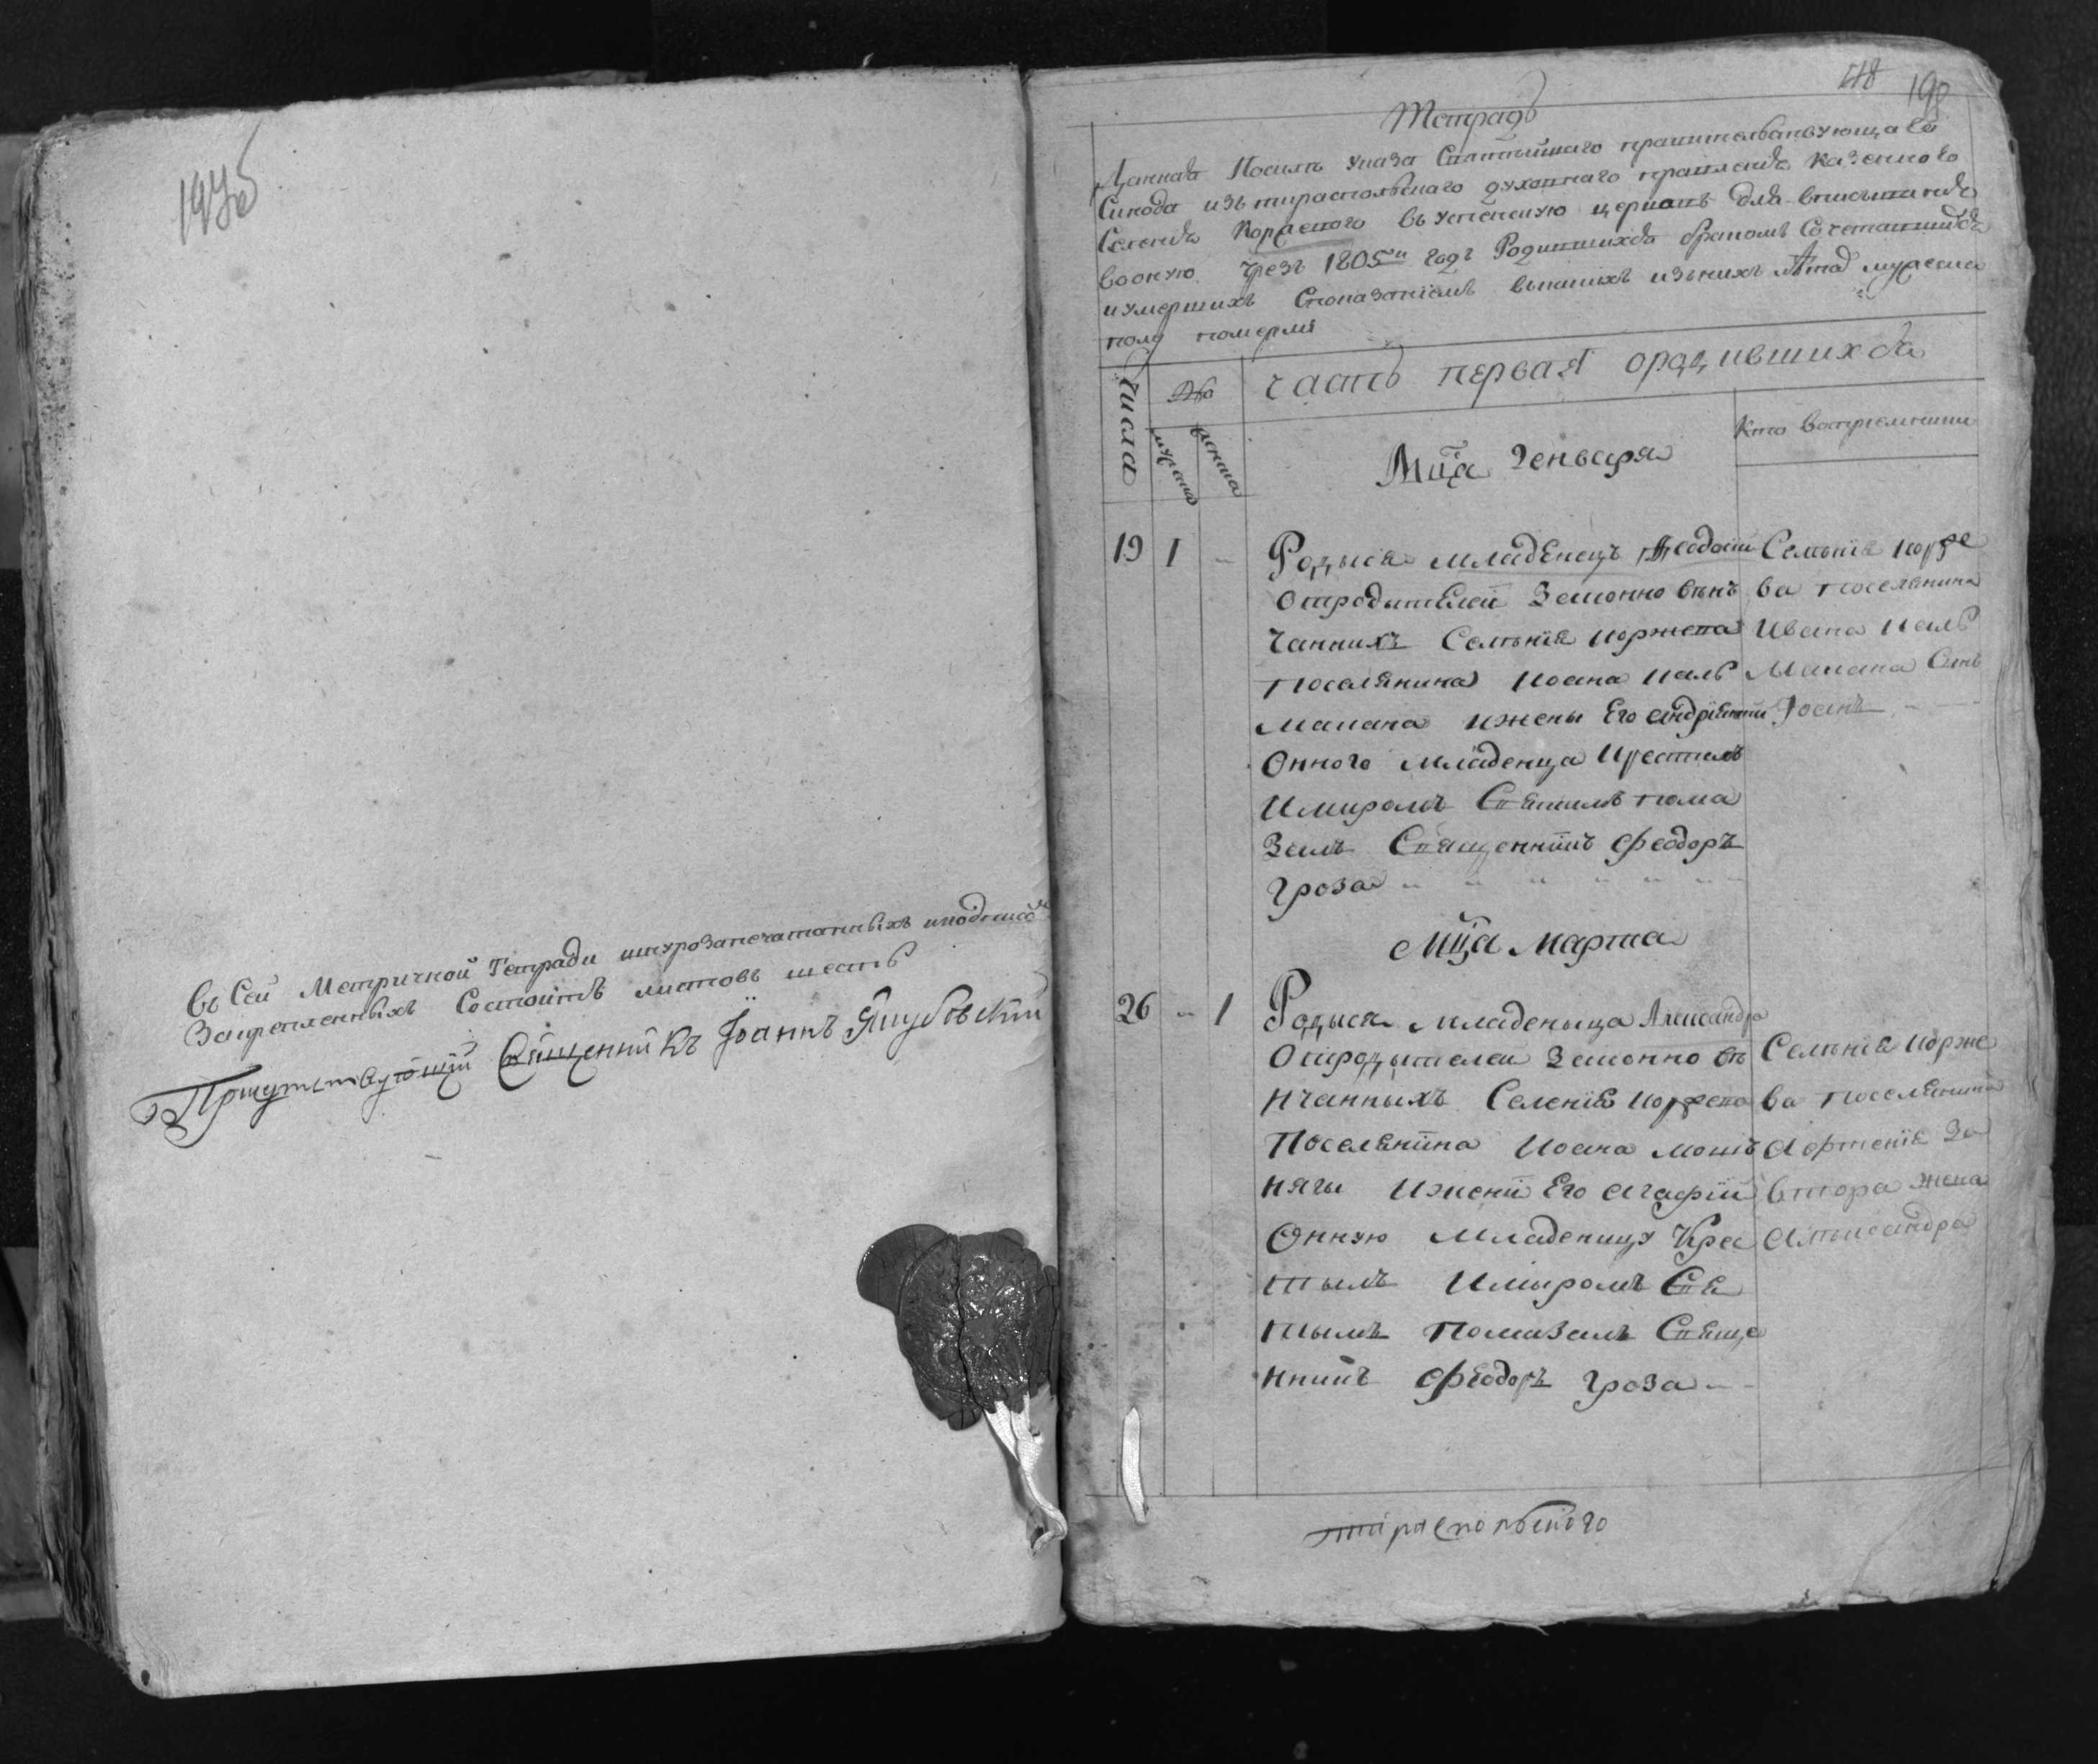 197об
въ Сей Метричной Тетради шнурозапечатанныхъ иподписо
Закрепленныхъ Состоитъ листовъ шесть
Присутствующій Священникъ Іоаннъ Якубовскій
118 198
Тетрадь
Данная Посилѣ указа Святѣйшаго правительствующаго
Синода изъ тираспольскаго духовнаго правленія казенного
Селенія Коржевого въ успенскую церковъ для вписыванія
воокую чрезъ 1805й годъ Родившихся бракомъ Сочетавшихся
иумершихъ Споказаніемъ вкакихъ изънихъ лѣта мужеска
полу померли
Числа
Число
мужеска
женска
часть первая ородившихся
Мц҃а Генваря
Кто восприемники
19 1 - Родыся младенецъ Ѳеодосій
Отродителей Законно вѣнъ
чанныхъ Селенія Коржева
Поселянина Иоана Каль
макана ижены Его андріянны
Онного младенца Крестилъ
Имиромъ Святимъ пома
Залъ Священникъ Феодоръ
Гроза
Селенія корже
ва поселянина
Ивана Каль
Макана Синъ
Іоанъ
Мц҃а Марта
26 - 1 Родыся младеныца Александра
Отродытелей Законно вѣ
нчанныхъ Селенія Коржева
Поселянина Иоана мошъ
няги Ижени Его агафіи
Онную младеницу Крес
тылъ Имыромъ Свя
тымъ Помазалъ Свяще
нникъ Феодоръ Гроза
Селенія Корже
ва поселянина
Артенія За
втора жена
Александра
тираспольского